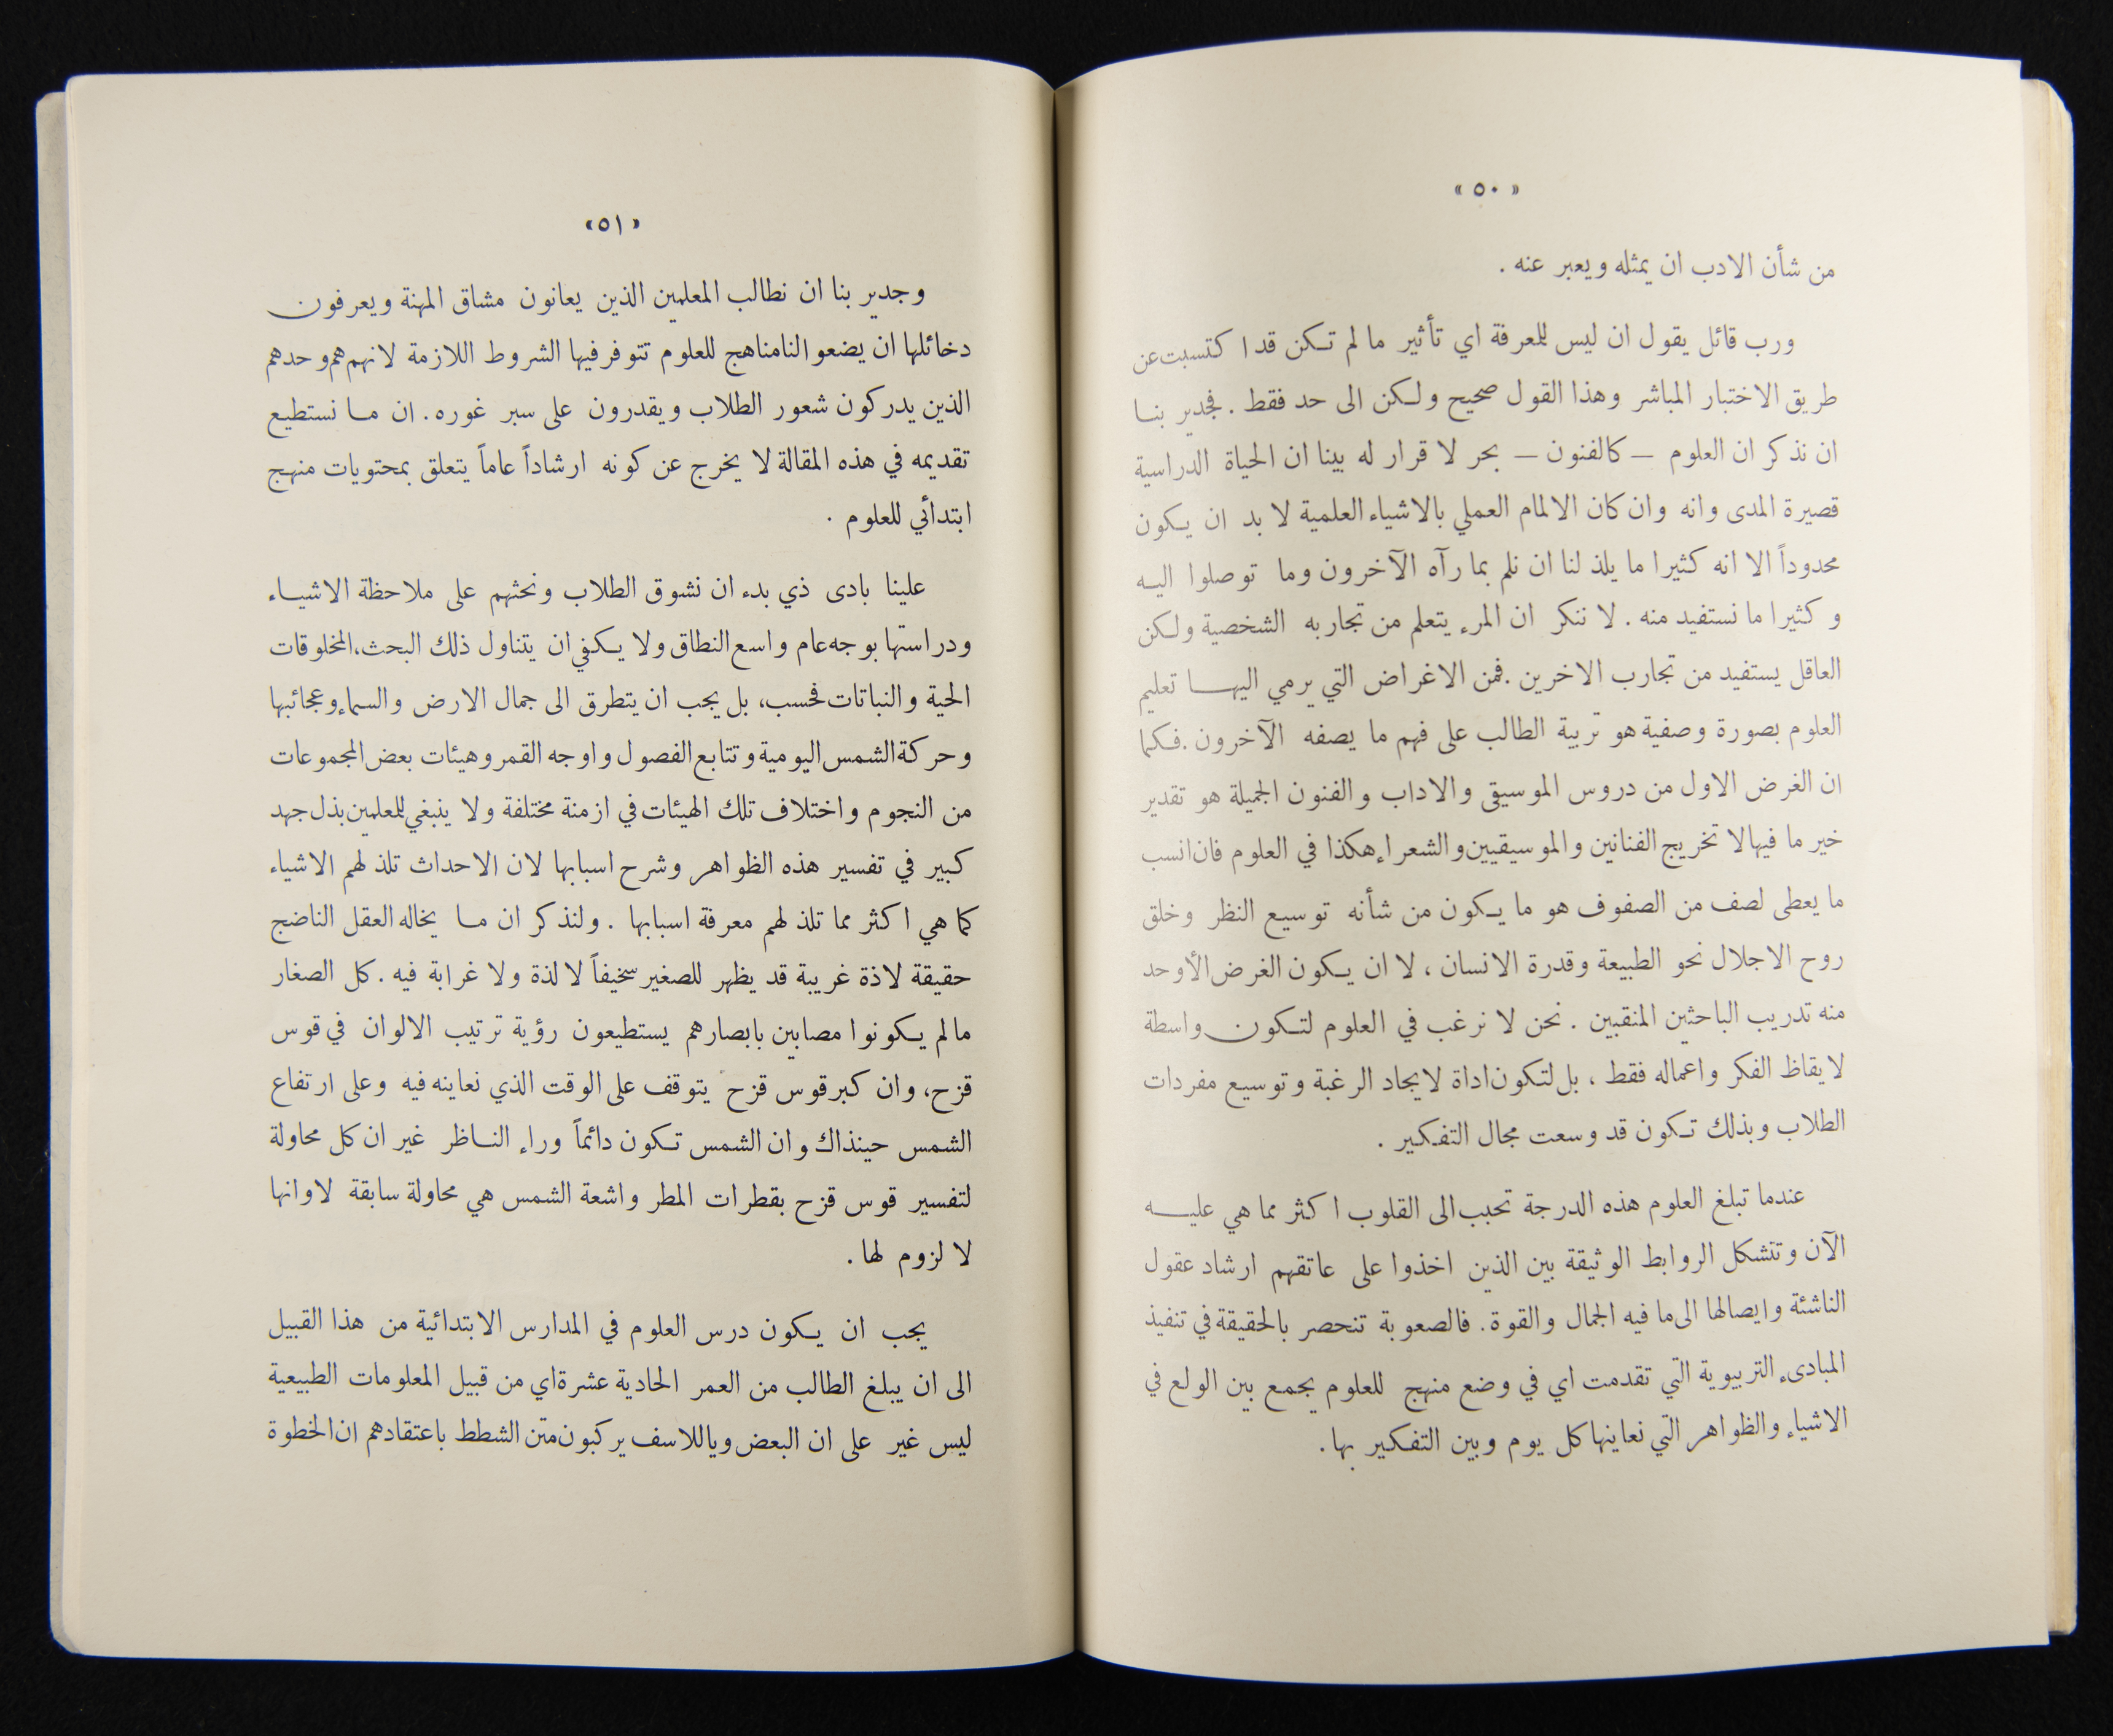 « ٥٠ »
من شأن الادب ان يمثله ويعبر عنه .
ورب قائل يقول ان ليس للمعرفة اي تأثير ما لم تكن قد اكتسبت عن
طريق الاختبار المباشر وهذا القول صحيح ولكن الى حد فقط . فجدير بنا
ان نذكر ان العلوم — كالفنون — بحر لا قرار له بينا ان الحياة الدراسية
قصيرة المدى وانه وان كان الالمام العملي بالاشياء العلمية لا بد ان يكون
محدوداً الا انه كثيرا ما يلذ لنا ان نلم بما رآه الآخرون وما توصلوا اليه
وكثيرا ما نستفيد منه . لا ننكر ان المرء يتعلم من تجاربه الشخصية ولكن
العاقل يستفيد من تجارب الاخرين . فمن الاغراض التي يرمي اليها تعليم
العلوم بصورة وصفية هو تربية الطالب على فهم ما يصفه الآخرون . فكما
ان الغرض الاول من دروس الموسيقى والاداب والفنون الجميلة هو تقدير
خير ما فيها لا تخريج الفنانين والموسيقيين والشعراء هكذا في العلوم فان انسب
ما يعطى لصف من الصفوف هو ما يكون من شأنه توسيع النظر وخلق
روح الاجلال نحو الطبيعة وقدرة الانسان ، لا ان يكون الغرض الأوحد
منه تدريب الباحثين المنقبين . نحن لا نرغب في العلوم لتكون واسطة
لايقاظ الفكر واعماله فقط ، بل لتكون اداة لايجاد الرغبة وتوسيع مفردات
الطلاب وبذلك تكون قد وسعت مجال التفكير .
عندما تبلغ العلوم هذه الدرجة تحبب الى القلوب اكثر مما هي عليه
الآن وتتشكل الروابط الوثيقة بين الذين اخذوا على عاتقهم ارشاد عقول
الناشئة وايصالها الى ما فيه الجمال والقوة . فالصعوبة تنحصر بالحقيقة في تنفيذ
المبادىء التربيوية التي تقدمت اي في وضع منهج للعلوم يجمع بين الولع في
الاشياء والظواهر التي نعاينها كل يوم وبين التفكير بها .
« ٥١ »
وجدير بنا ان نطالب المعلمين الذين يعانون مشاق المهنة ويعرفون
دخائلها ان يضعوا لنا مناهج للعلوم تتوفر فيها الشروط اللازمة لانهم هم وحدهم
الذين يدركون شعور الطلاب ويقدرون على سبر غوره . ان ما نستطيع
تقديمه في هذه المقالة لا يخرج عن كونه ارشاداً عاماً يتعلق بمحتويات منهج
ابتدأئي للعلوم .
علينا بادى ذي بدء ان نشوق الطلاب ونحثهم على ملاحظة الاشياء
ودراستها بوجه عام واسع النطاق ولا يكفي ان يتناول ذلك البحث، المخلوقات
الحية والنباتات فحسب، بل يجب ان يتطرق الى جمال الارض والسماء وعجائبها
وحركة الشمس اليومية وتتابع الفصول واوجه القمر وهيئات بعض المجموعات
من النجوم واختلاف تلك الهيئات في ازمنة مختلفة ولا ينبغي للمعلمين بذل جهد
كبير في تفسير هذه الظواهر وشرح اسبابها لان الاحداث تلذ لهم الاشياء
كما هي اكثر مما تلذ لهم معرفة اسبابها . ولنذكر ان ما يخاله العقل الناضج
حقيقة لاذة غريبة قد يظهر للصغير سخيفاً لا لذة ولا غرابة فيه . كل الصغار
مالم يكونوا مصابين بابصارهم يستطيعون رؤية ترتيب الالوان في قوس
قزح، وان كبر قوس قزح يتوقف على الوقت الذي نعاينه فيه وعلى ارتفاع
الشمس حينذاك وان الشمس تكون دائماً وراء الناظر غير ان كل محاولة
لتفسير قوس قزح بقطرات المطر واشعة الشمس هي محاولة سابقة لاوانها
لا لزوم لها .
يجب ان يكون درس العلوم في المدارس الابتدائية من هذا القبيل
الى ان يبلغ الطالب من العمر الحادية عشرة اي من قبيل المعلومات الطبيعية
ليس غير على ان البعض وياللاسف يركبون متن الشطط باعتقادهم ان الخطوة